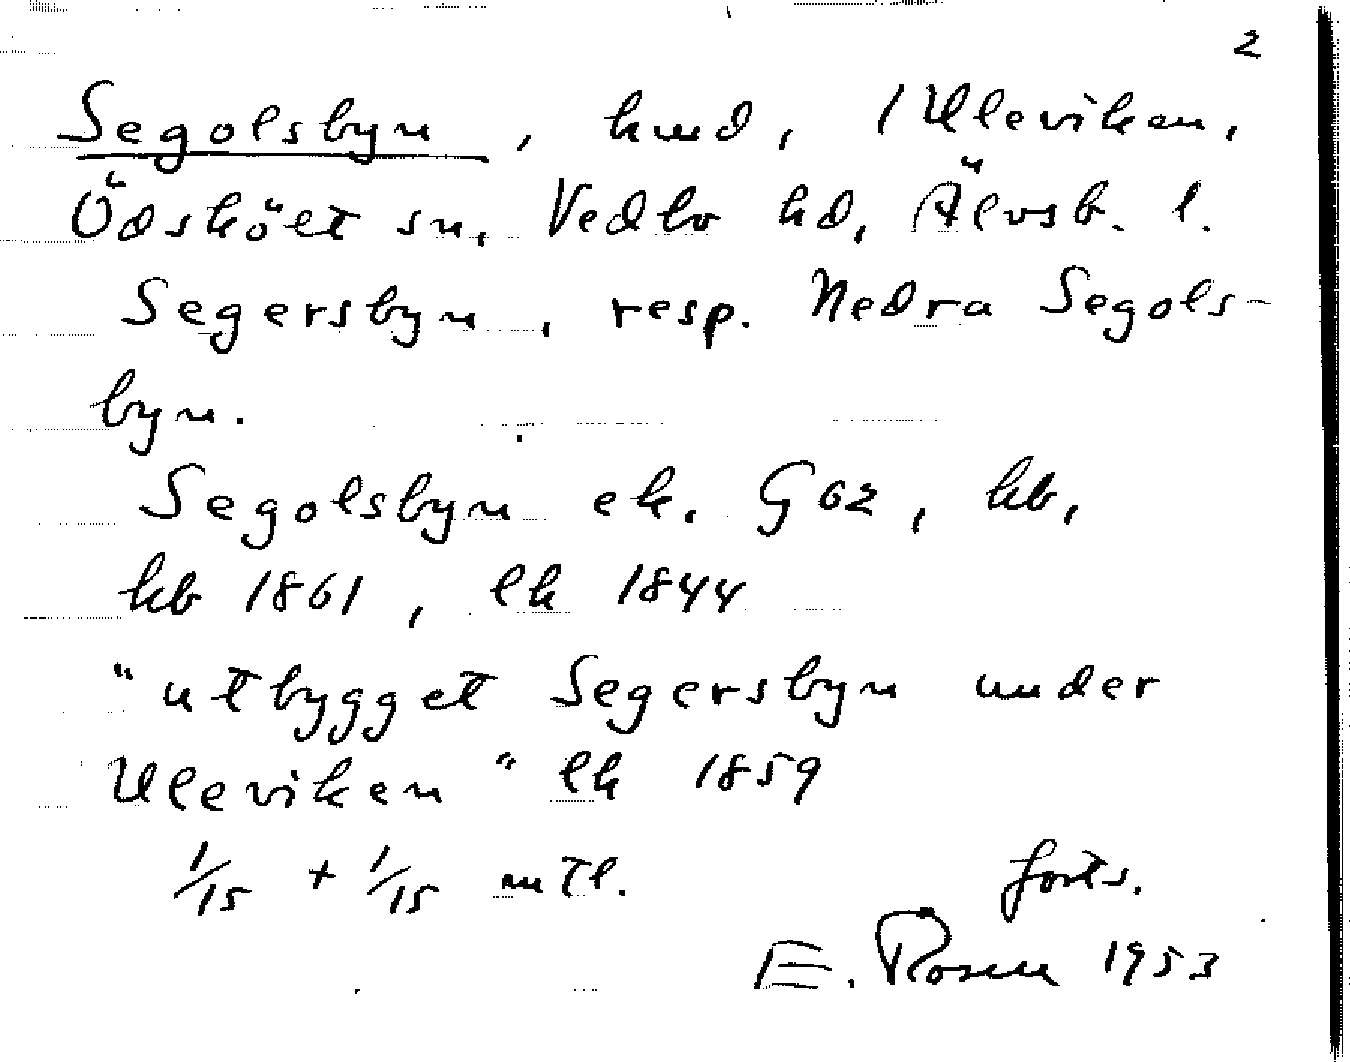 2
Segolsbyn, hmd, 1 Uleviken,
Ödskölt sn, Vedbo hd, Älvsb. l.
Segersbyn, resp. Nedra Segols-
byn.
Segolsbyn ek. G 62, kb,
hb 1861, lk 1844
"utbygget Segersbyn under
Uleviken" lk 1859
1/15 + 1/15 mtl.
forts.
E. Rosell 1953